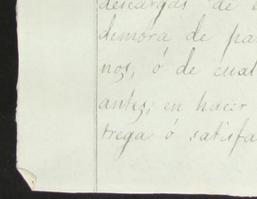 descargas de
demora de pa
nos, ó de cual
antes; en hacer
trega ó satisfa